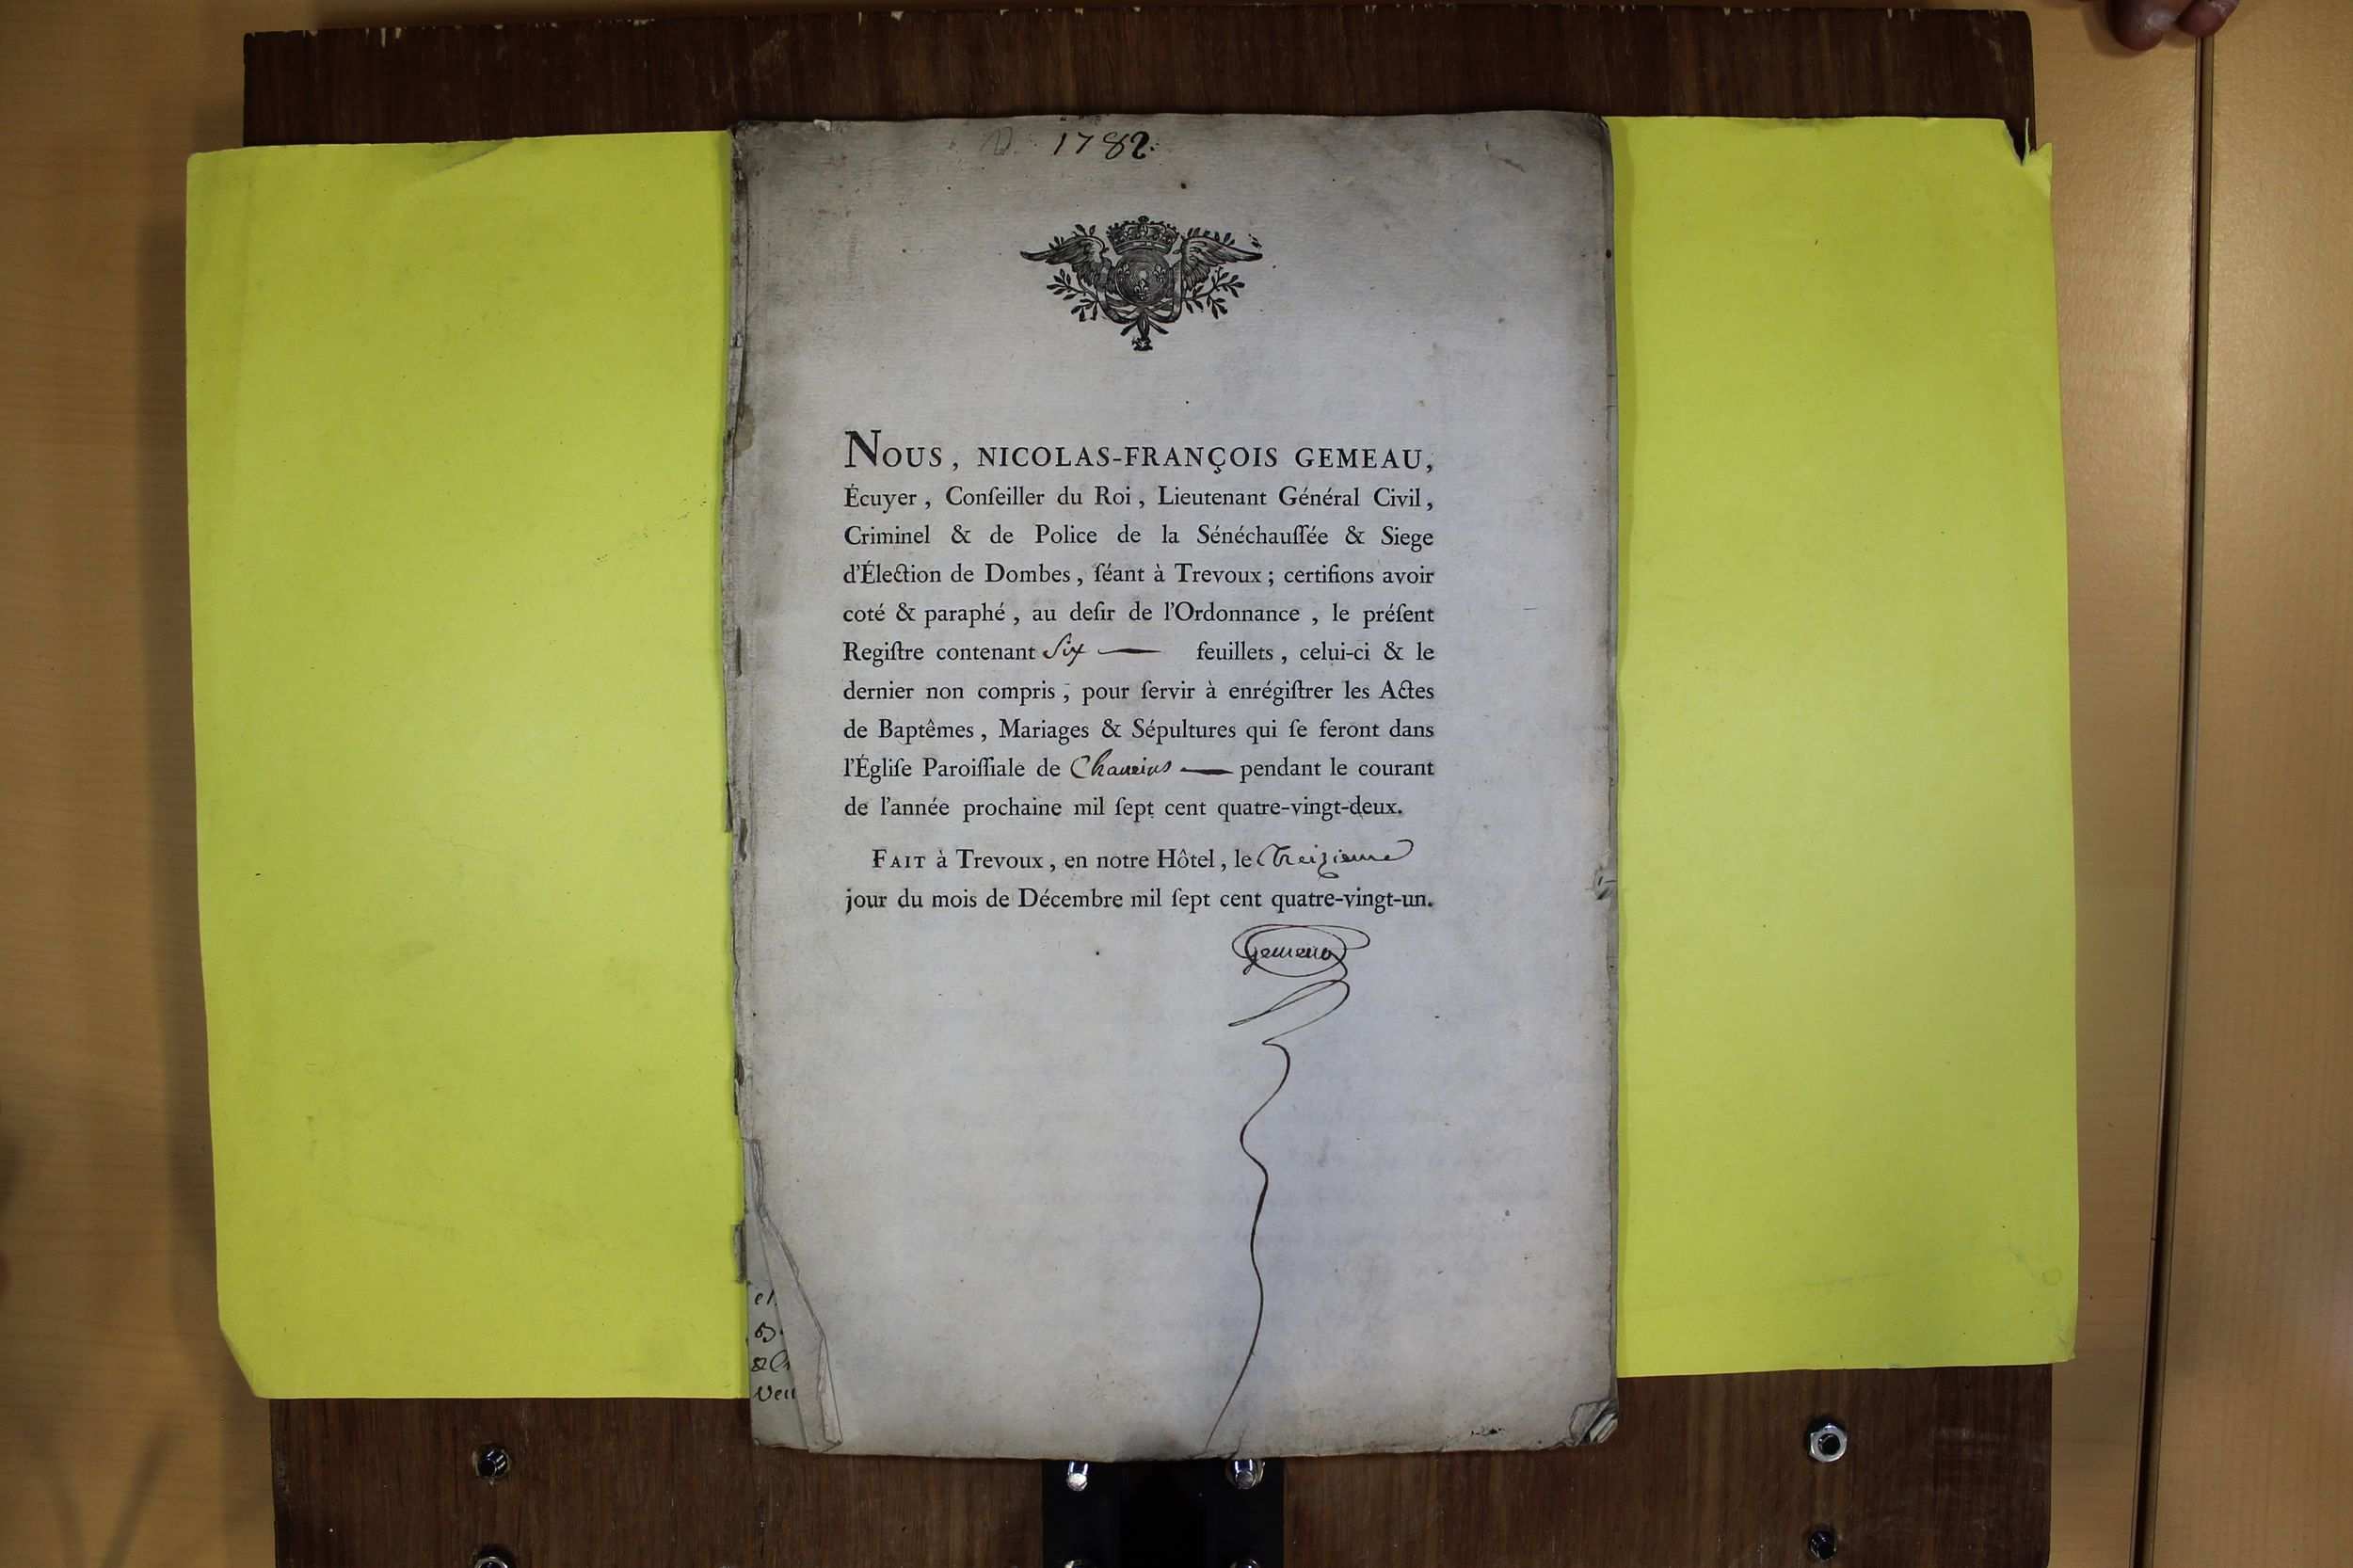 1782.
NOUS, NICOLAS-FRANÇOIS GEMEAU,
Écuyer, Conſeiller du Roi, Lieutenant Général Civil,
Criminel & de Police de la Sénéchauſſée & Siege
d'Élection de Dombes, ſéant à Trevoux; certifions avoir
coté & paraphé, au deſir de l'Ordonnance, le préſent
Regiſtre contenant Six — feuillets, celui-ci & le
dernier non compris, pour ſervir à enrégiſtrer les Actes
de Baptêmes, Mariages & Sépultures qui ſe feront dans
l'Égliſe Paroiſſiale de Chaneins — pendant le courant
de l'année prochaine mil ſept cent quatre-vingt-deux.
FAIT à Trevoux, en notre Hôtel, le Treizieme
jour du mois de Décembre mil ſept cent quatre-vingt-un.
Gemeau